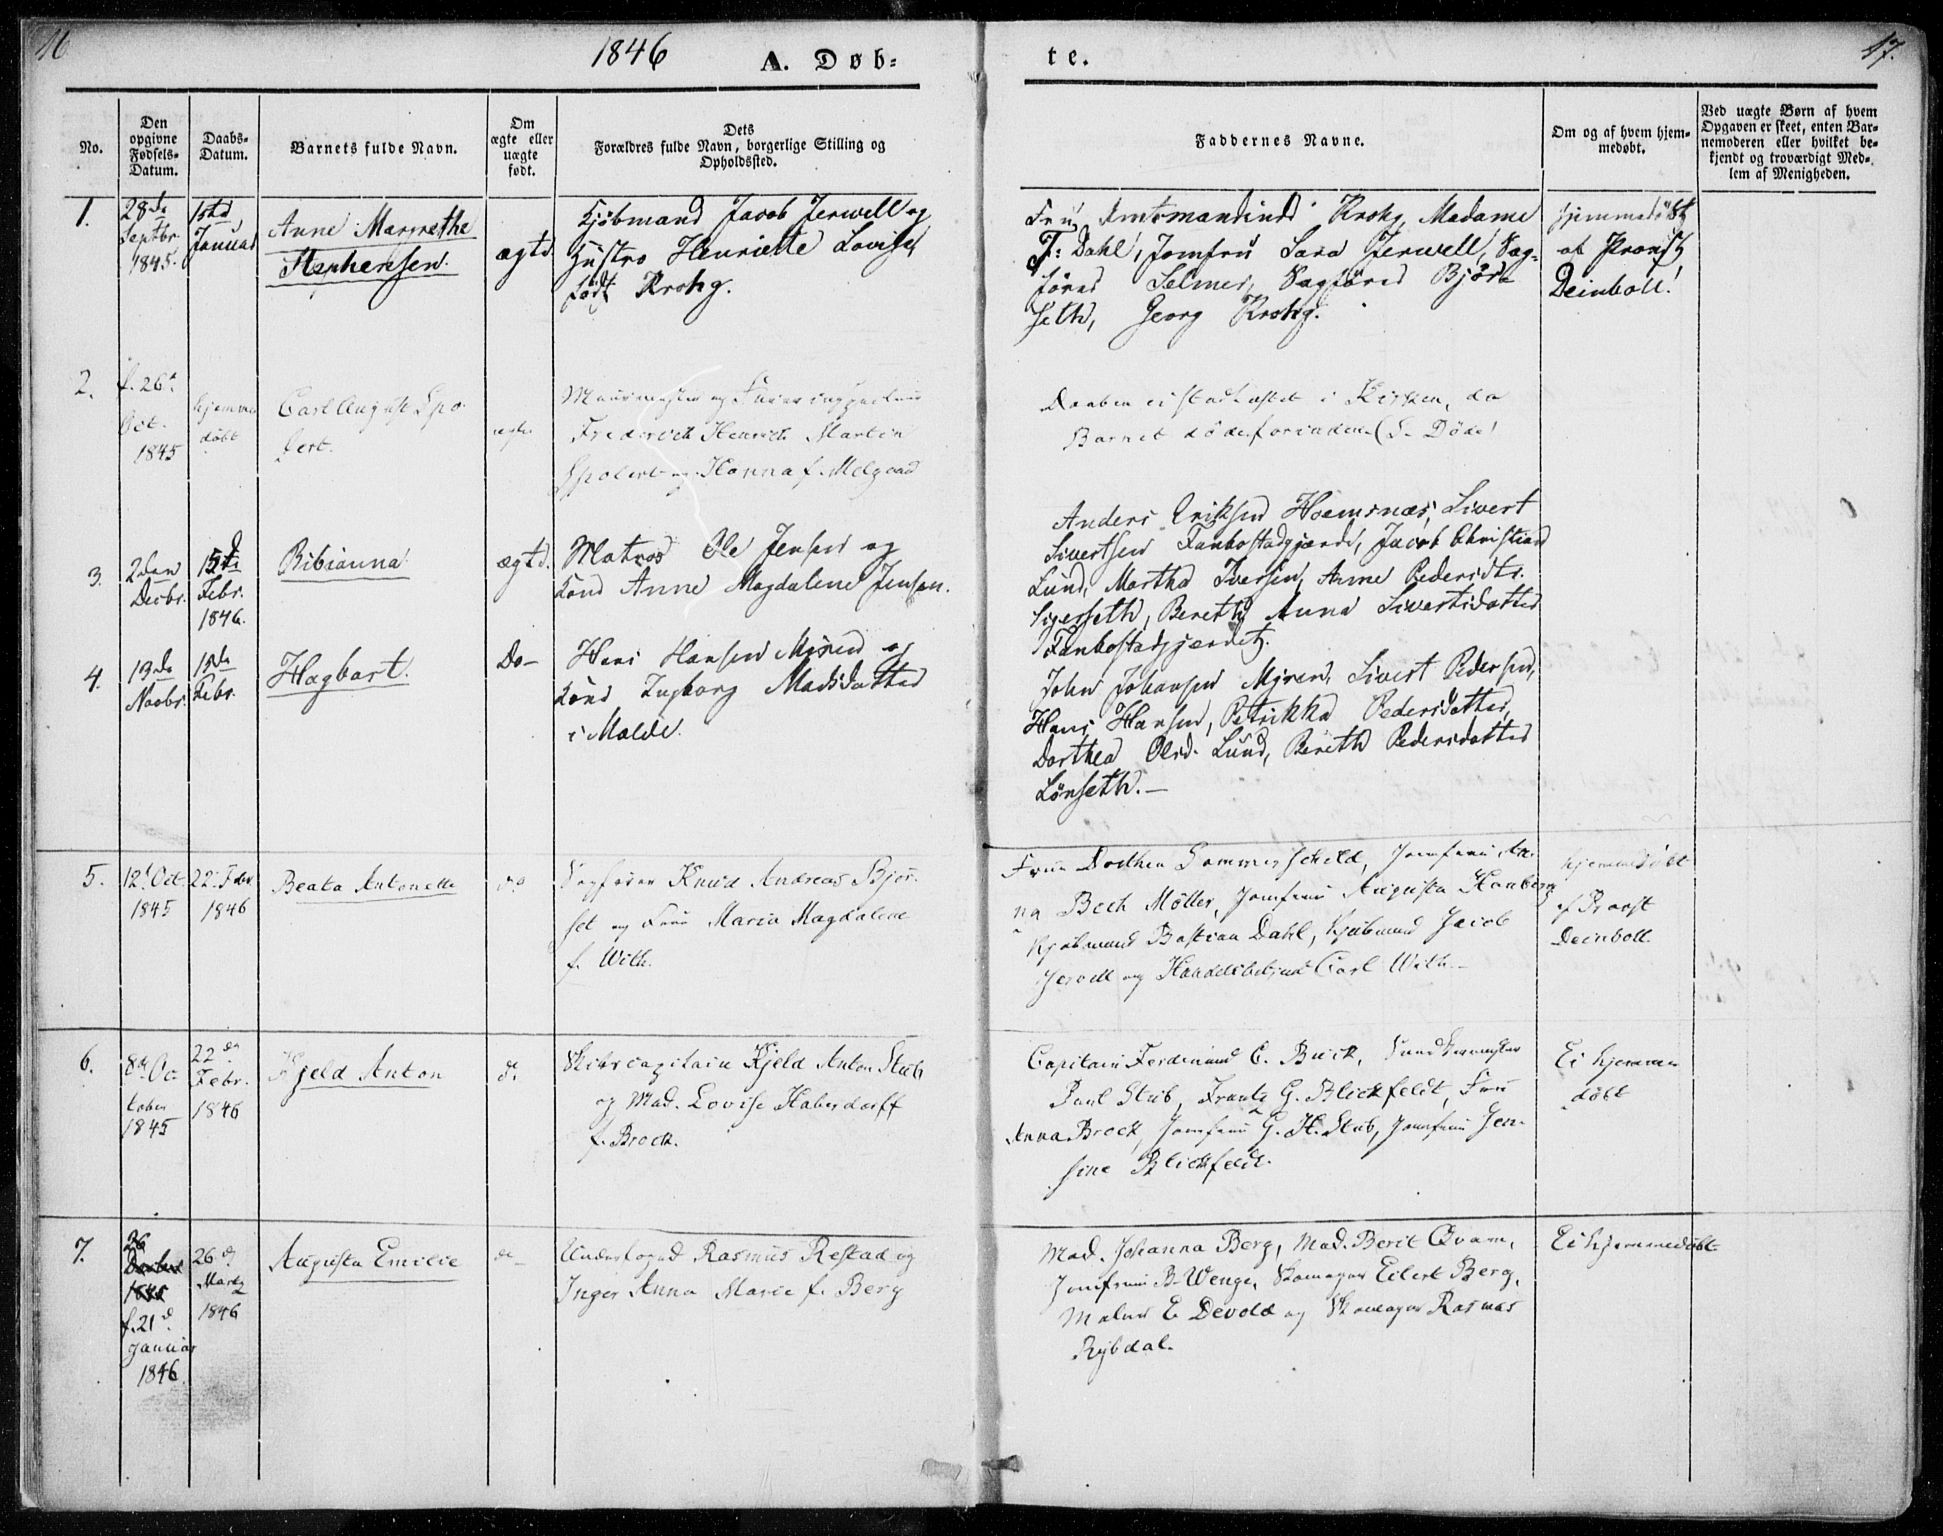 16
1846
A. Døb-
te.
17.
No.
Den opgivne Fødsels-Datum.
Daabs-Datum.
Barnets fulde Navn.
Om ægte eller uægte født.
Dets Forældres fulde Navn, borgerlige Stilling og Opholdssted.
Faddernes Navne.
Om og af hvem hjem-medøbt.
Ved uægte Børn af hvem Opgaven er skeet, enten Bar-nemoderen eller hvilket be-kjendt og troværdigt Med-lem af Menigheden.
1.
28de
Septbr.
1845.
1ste
Januar
Anne Margrethe
Stephensen.
ægte
Kjöbmand Jacob Jerwell og
Hustro Henriette Lovise,
født Krohg.
Fru Amtmandinde Krohg, Madame
F: Dahl, Jomfru Sara Jerwell, Sag-
förer Selmer, Sagförer Björ-
seth, Georg Krohg.
hjemmedöbt
af Provst
Deinboll.
2.
f. 26d
Oct.
1845
hjemme
döbt
Carl August Spo-
lert.
ægte
Muurmester og
Frederich Henrich Martin
Spolert og Hanna f. Melgaard
Daaben ei stadfæstet i Kirken, da
Barnet döde forinden (S. Döde)
3.
2den
Decbr.
15de
Febr.
1846.
Bibianna
ægte.
Matros Ole Jensen og
Kone Anne Magdalene Jensen.
Anders Eriksen Hoemsnæs, Sivert
Sivertsen Fanbostadgjærde, Jacob Christian
Lund, Martha Iversen, Anne Pedersdtr.
Bereth Anna Sivertsdatter
Fanbostadgjærdet.
4.
13de
Novbr.
15de
Febr.
Hagbart.
Do-
Hans Hansen Myren og
Kone Ingborg Madsdatter
i Molde.
John Johansen Myren, Sivert Pedersen,
Hans Hansen, Petrikka Pedersdatter,
Dorthea Olsd. Lund, Bereth Pedersdatter
Lönseth.-
5.
12t Oct.
1845
22 Febr
1846
Beata Antonette
do
Sagförer Knud Andreas Björ-
set og Frue Maria Magdalene
f. With.
Frue Dorthea Sommerscheld, Jomfrue An-
na Bech Möller, Jomfrue Augusta Hanberg
Kjöbmand Bastian Dahl, Kjöbmand Jacob
Jervell og Handelsbetjent Carl With.-
hjemmedöbt
af Provst
Deinboll.
6.
8de Oc-
tober
1845
22de
Febr.
1846
Kjeld Anton
d.
Skibscapitain Kjeld Anton Stub
og Mad. Lovise Haberdorff
f. Brock.
Capitain Ferdinand C. Buck,
Paul Stub, Frantz G. Blickfeldt, Frue
Anna Brock, Jomfrue G. H. Stub, Jomfrue Jen-
sine Blickfeldt.
Ei hjemme
döbt
7.
26
1845
f. 21d
Januar
1846.
26d
Martz
1846
Augusta Emilie
do
Underfoged Rasmus Restad og
Inger Anna Marie f. Berg
Mad. Johanna Berg, Mad. Berit Qvam,
Jomfrue B. Wenge, Skomager Eilert Berg,
Maler E Devold og Skomager Rasmus
Rybdal.
Ei hjemmedöbt